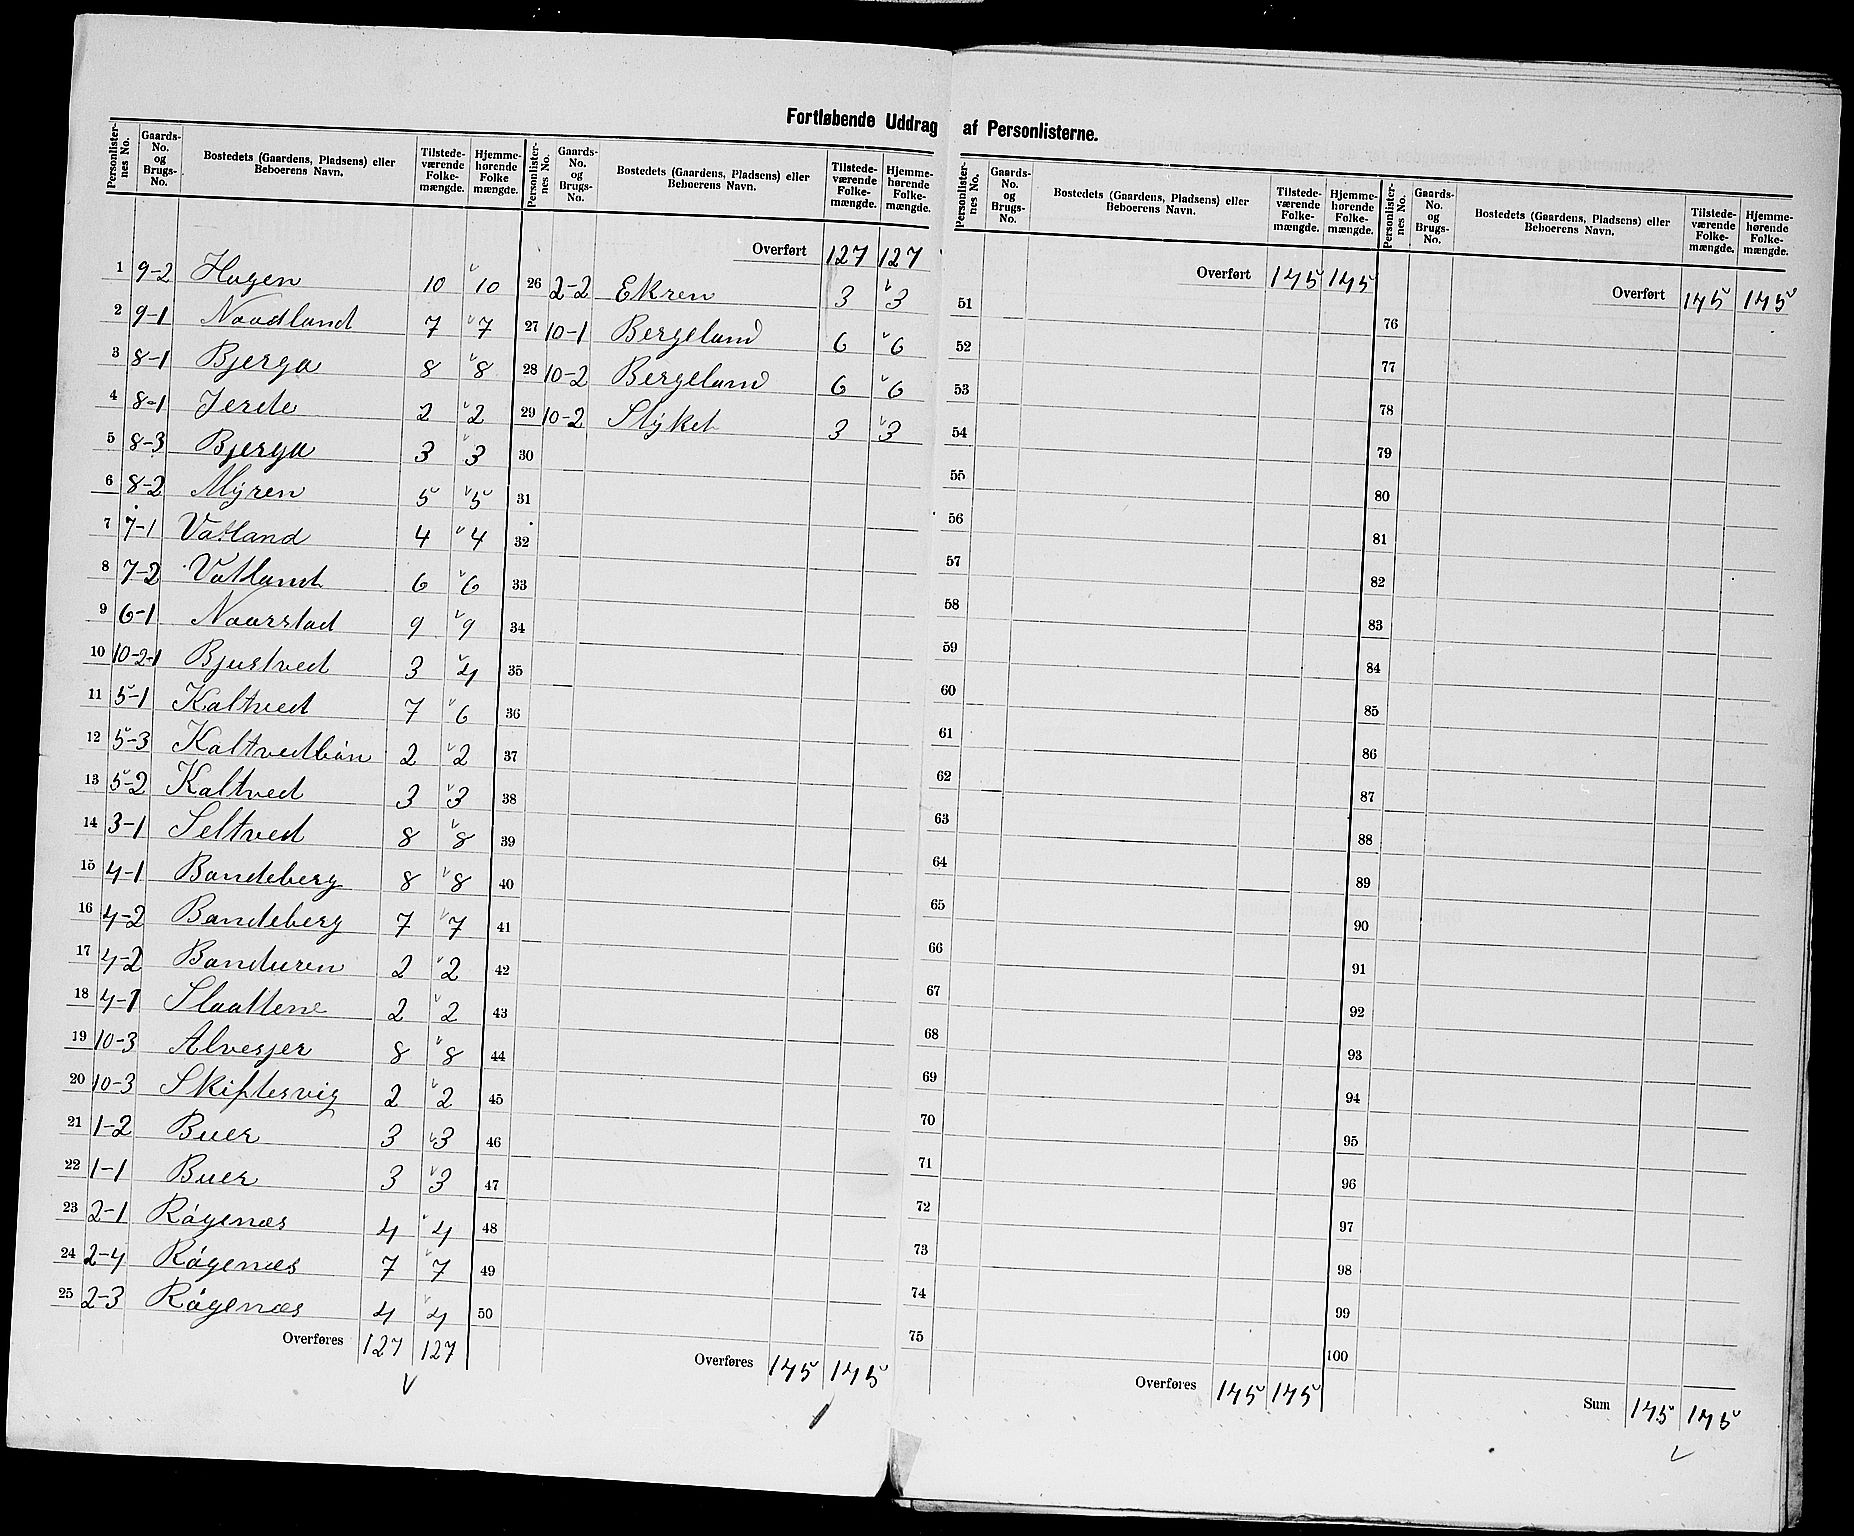 Fortløbende Uddrag af Personlisterne.
Personlister-nes No. Gaards-No. og Brugs-No. Bostedets (Gaardens, Pladsens) eller Beboerens Navn. Tilstede-værende Folke-mængde. Hjemme-hørende Folke mængde.
1 9-2 Hagen 10 10
2 9-1 Naadland 7 7
3 8-1 Bjerga 8 8
4 8-1 Jerde 2 2
5 8-3 Bjerga 3 3
6 8-2 Myren 5 5
7 7-1 Vatland 4 4
8 7-2 Vatland 6 6
9 6-1 Naarstad 9 9
10 10-2-1 Bjustved 3 4
11 5-1 Kaltved 7 6
12 5-3 Kaltvedbøn 2 2
13 5-2 Kaltved 3 3
14 3-1 Seltved 8 8
15 4-1 Bandeberg 8 8
16 4-2 Bandeberg 7 7
17 4-2 Banduren 2 2
18 4-1 Slaattene 2 2
19 10-3 Alvesjer 8 8
20 10-3 Skiftesvig 2 2
21 1-2 Buer 3 3
22 1-1 Buer 3 3
23 2-1 Røgenæs 4 4
24 2-4 Røgenæs 7 7
25 2-3 Røgenæs 4 4
Overføres 127 127
Personlister-nes No. Gaards-No. og Brugs-No. Bostedets (Gaardens, Pladsens) eller Beboerens Navn. Tilstede-værende Folke-mængde. Hjemme-hørende Folke-mængde.
Overført 127 127
26 2-2 Ekren 3 3
27 10-1 Bergeland 6 6
28 10-2 Bergeland 6 6
29 10-2 Styket 3 3
30
31
32
33
34
35
36
37
38
39
40
41
42
43
44
45
46
47
48
49
50
Overføres 145 145
Personlister-nes No. Gaards-No. og Brugs-No. Bostedets (Gaardens, Pladsens) eller Beboerens Navn. Tilstede-værende Folke-mængde. Hjemme-hørende Folke-mængde.
Overført 145 145
51
52
53
54
55
56
57
58
59
60
61
62
63
64
65
66
67
68
69
70
71
72
73
74
75
Overføres 145 145
Personlister-nes No. Gaards-No. og Brugs-No. Bostedets (Gaardens, Pladsens) eller Beboerens Navn. Tilstede-værende Folke-mængde. Hjemme-hørende Folke-mængde.
Overført 145 145
76
77
78
79
80
81
82
83
84
85
86
87
88
89
90
91
92
93
94
95
96
97
98
99
100
Sum 145 145